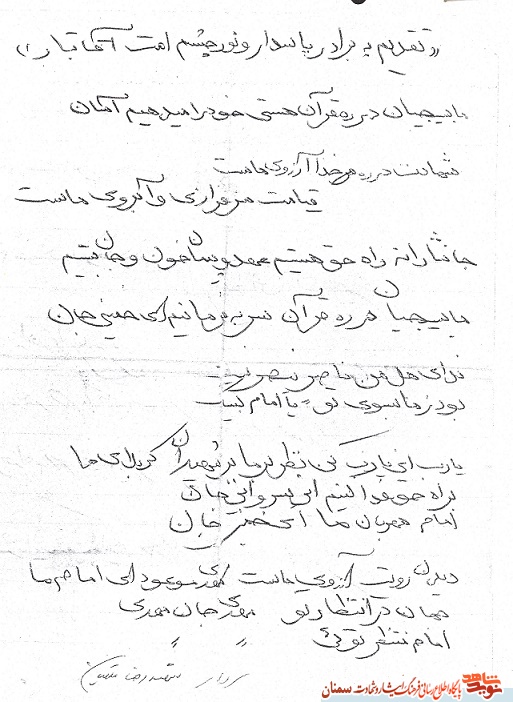 «تقدیم به برادر پاسدار و نور چشم امت آقا تبار»
ما بسیجیان در ره قرآن هستی خود را میدهیم آسان
شهادت در ره خدا آرزوی ماست
قیامت سرفرازی و آبروی ماست
جانثارانه راه حق هستیم عهد و پیمان خون و جان بستیم
ما بسیجیان در ره قرآن سر به فرمانیم ای خمینی جان
ندای هل من ناصر ینصرنی
بود ز ما بسوی تو یا امام لبیک
یارب این یارب کن نظر بر ما بر شهیدان کربلای ما
براه حق فدا کنیم این سر و این جان
امام مهربان ما ای خمینی جان
دیدن رویت آرزوی ماست مهدی موعود ای امام ما
جهان در انتظار تو مهدی جان مهدی
امام منتظر توئی " "
سردار شهید رضا
نوید شاهد
پایگاه اطلاع رسانی فرهنگ ایثار و شهادت سمنان